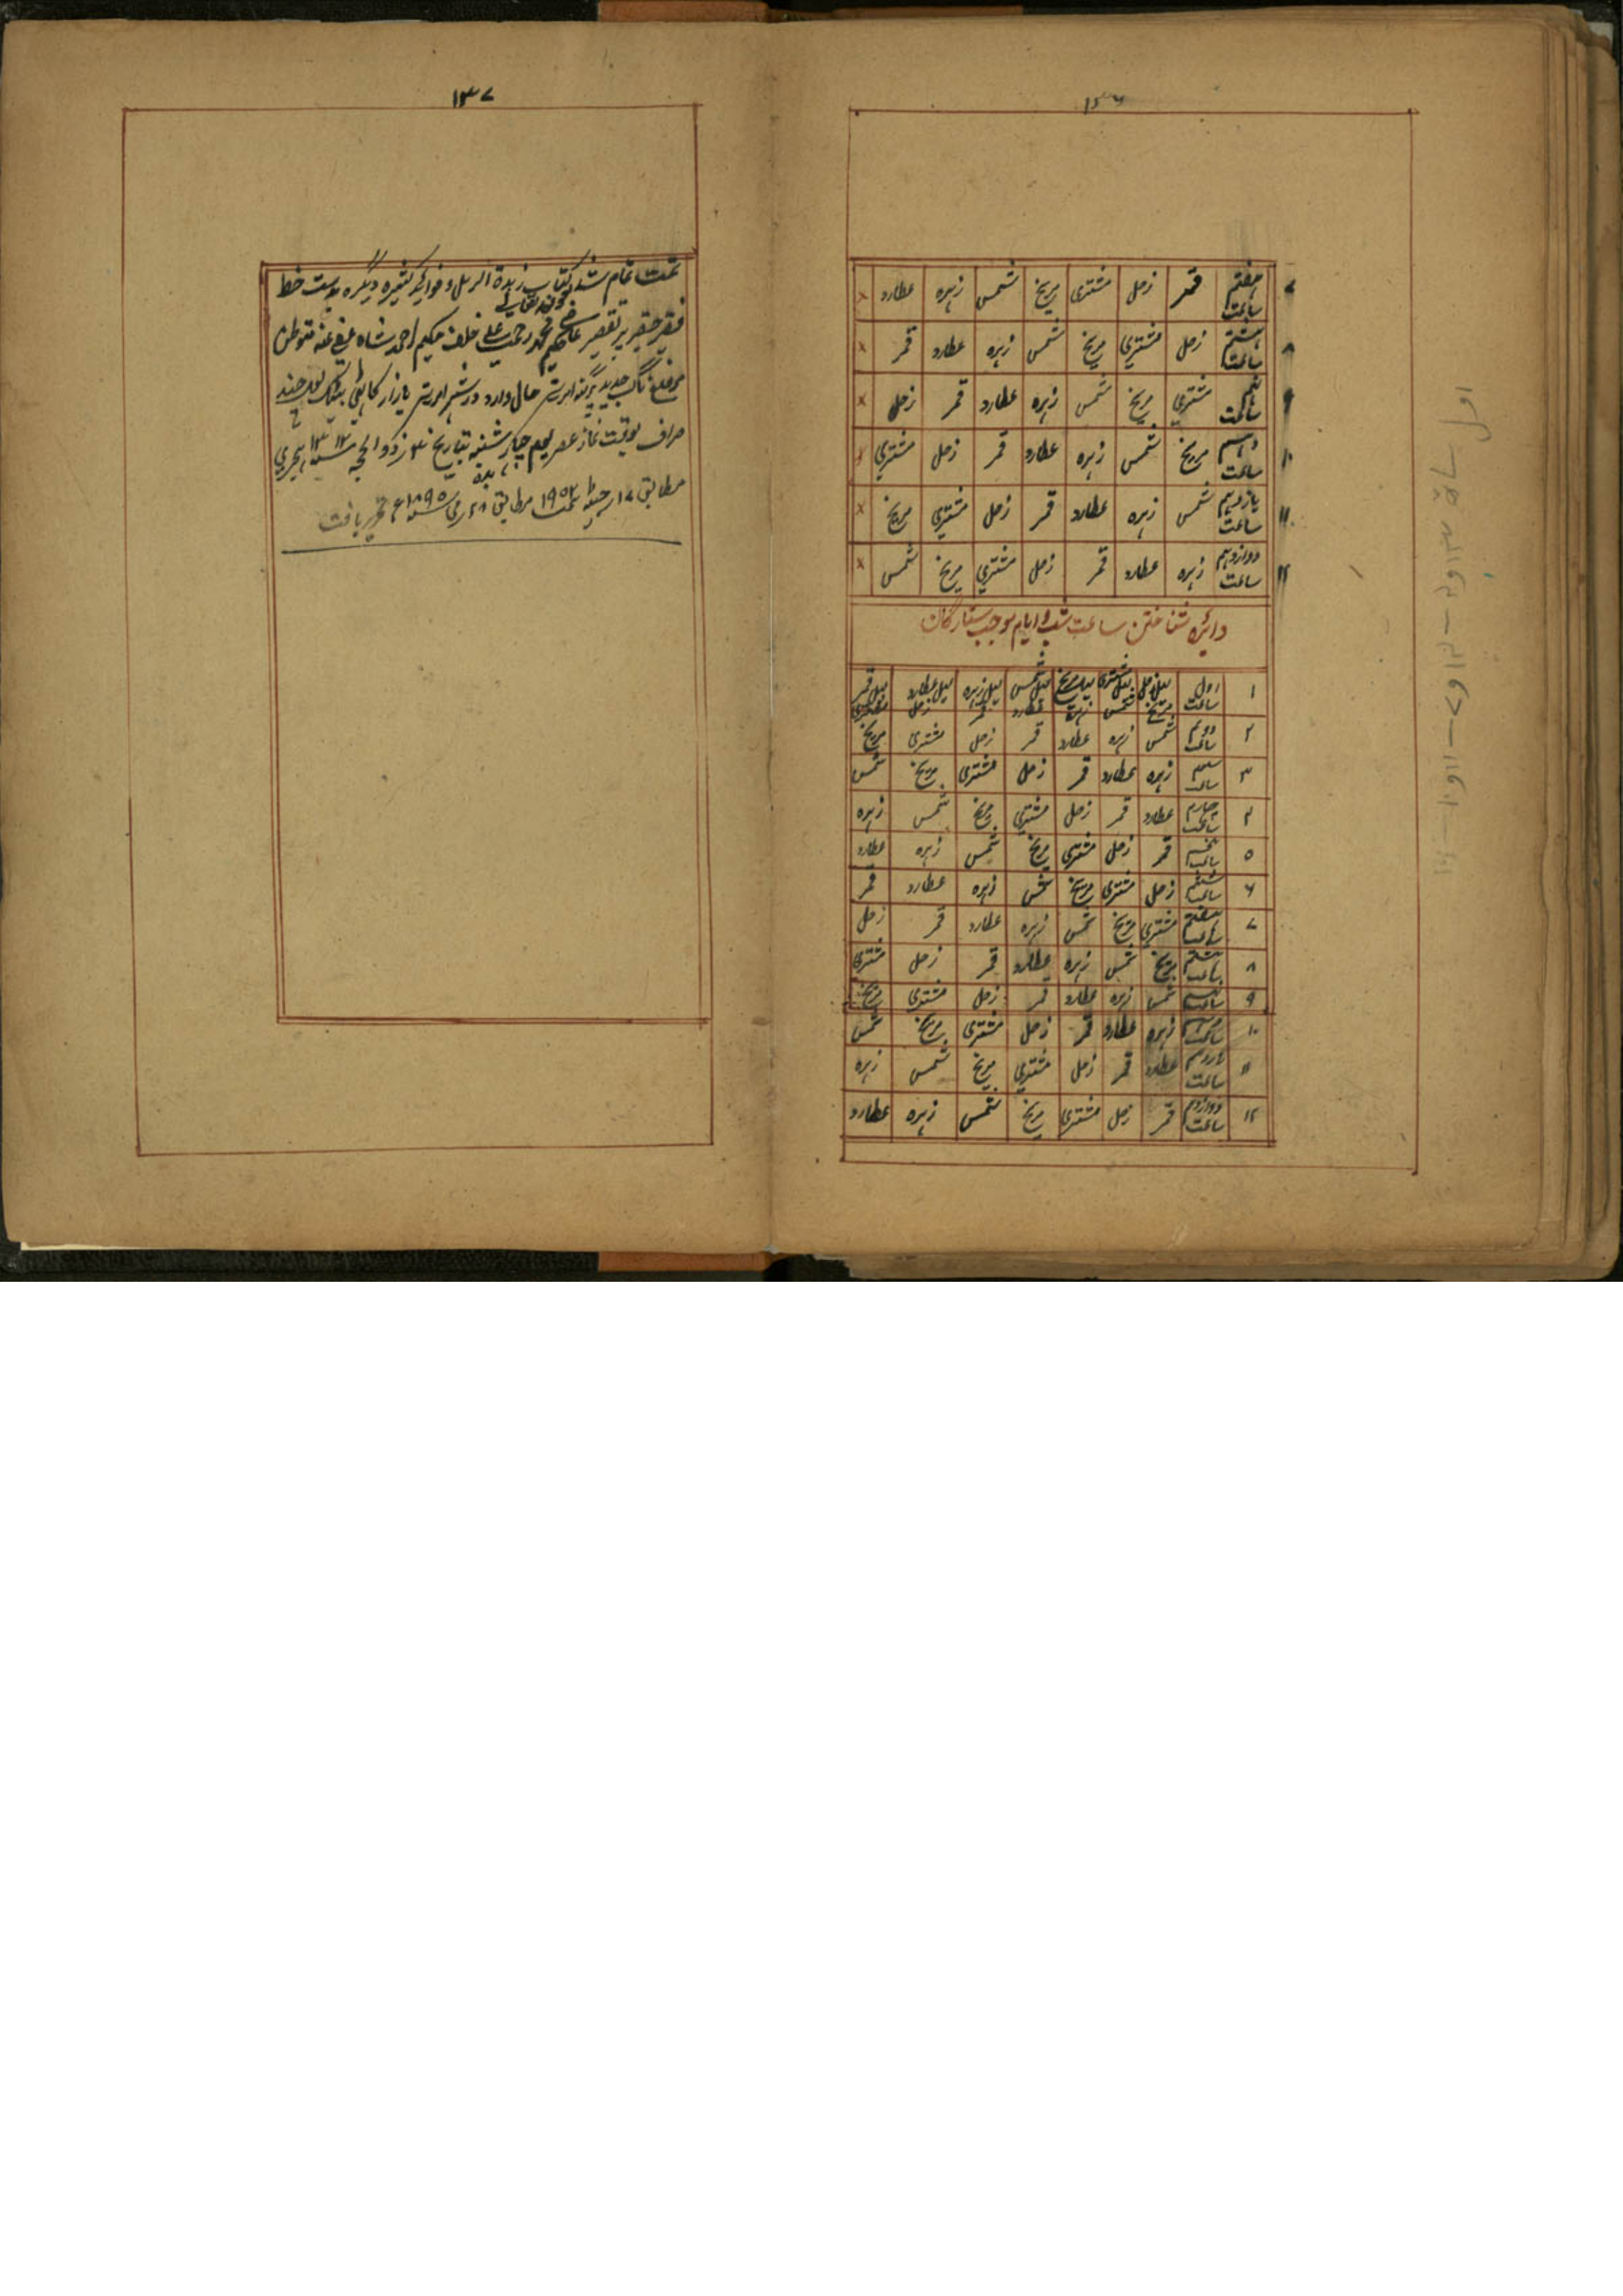 ۱۳۶
۷ هفتم ساعت قمر زحل مشتری مریخ شمس زہرہ عطارد ×
۸ ہشتم ساعت زحل مشتری مریخ شمس زہرہ عطارد قمر ×
۹ نہم ساعت مشتری مریخ شمس زہرہ عطارد قمر زحل ×
۱۰ دہم ساعت مریخ شمس زہرہ عطارد قمر زحل مشتری ×
۱۱ یازدہم ساعت شمس زہرہ عطارد قمر زحل مشتری مریخ ×
۱۲ دوازدہم ساعت زہرہ عطارد قمر زحل مشتری مریخ شمس ×
دائرہ شناختن ساعت شب و ایام بموجب ستارگان
۱ اول ساعت لیل زحل لیل مشتری لیل مریخ لیل شمس لیل زہرہ لیل عطارد لیل قمر
مریخ شمس زہرہ عطارد قمر زحل مشتری
۲ دوم ساعت شمس زہرہ عطارد قمر زحل مشتری مریخ
۳ سیم ساعت زہرہ عطارد قمر زحل مشتری مریخ شمس
۴ چہارم ساعت عطارد قمر زحل مشتری مریخ شمس زہرہ
۵ پنجم ساعت قمر زحل مشتری مریخ شمس زہرہ عطارد
۶ ششم ساعت زحل مشتری مریخ شمس زہرہ عطارد قمر
۷ ہفتم ساعت مشتری مریخ شمس زہرہ عطارد قمر زحل
۸ ہشتم ساعت مریخ شمس زہرہ عطارد قمر زحل مشتری
۹ نہم ساعت شمس زہرہ عطارد قمر زحل مشتری مریخ
۱۰ دہم ساعت زہرہ عطارد قمر زحل مشتری مریخ شمس
۱۱ یازدہم ساعت عطارد قمر زحل مشتری مریخ شمس زہرہ
۱۲ دوازدہم ساعت قمر زحل مشتری مریخ شمس زہرہ عطارد
۱۳۷
تمت تمام شد کتاب زبدة الرمل و فوائد کثیرہ دیگرہ بدست خط
بعون تعالی
فقیر حقیر پر تقصیر عاصی حکیم محمد رحمت علی خلف حکیم احمد شاہ عفی عنہ متوطن
موضع ناگ جدید پرگنہ امرتسر حال وارد در شہر امرتسر بازار
صراف بوقت نماز عصر یوم چہار شنبہ بتاریخ ۳ ذوالحجہ سنہ ۱۳۱۲ ہجری
مطابق ۱۷ جیٹھ سمت ۱۹۵۲ مطابق ۲۸ مئی سنہ ۱۸۹۵ء تحریر یافت